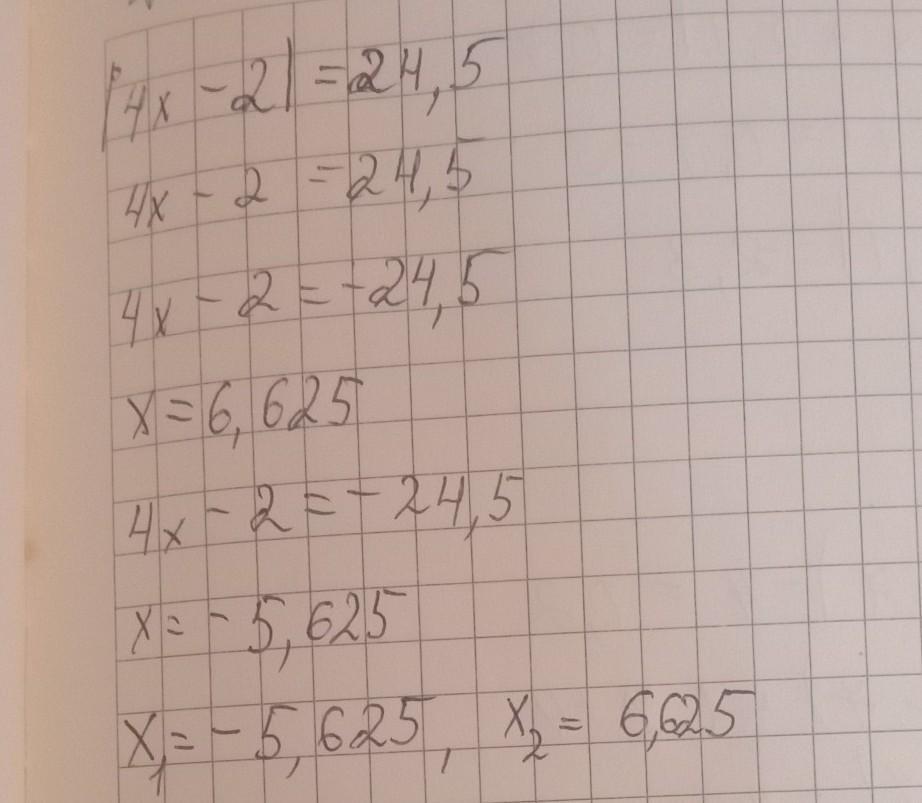 |4x - 2| = 24,5
4x - 2 = 24,5
4x - 2 = -24,5
x = 6,625
4x - 2 = - 24,5
x = - 5,625
x₁ = - 5,625, x₂ = 6,625